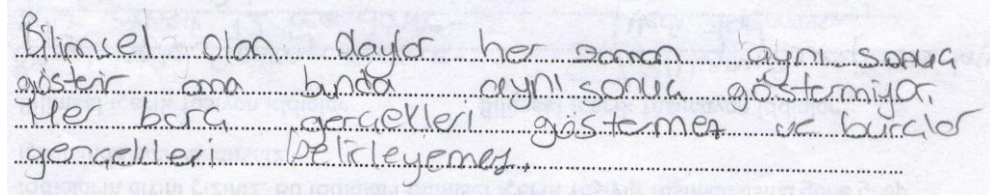 Bilimsel olan olaylar her zaman aynı sonucu
gösterir ama bunda aynı sonucu göstermiyor.
Her burç gerçekleri göstermez ve burçlar
gerçekleri belirleyemez.